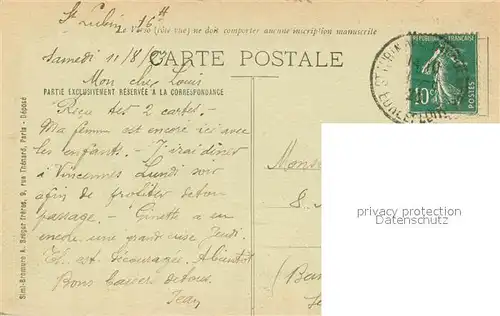 St Lubin 16H
Le verso (côté vue) ne doit comporter aucune inscription manuscrite
Samedi 11/8/
CARTE POSTALE
Mon cher Louis
PARTIE EXCLUSIVEMENT RÉSERVÉE A LA CORRESPONDANCE
Reçu tes 2 cartes.
Ma femme est encore ici avec
les enfants. J'irai dîner
à Vincennes Lundi soir
afin de profiter de ton
passage. Ginette a eu
encore une grande crise Jeudi.
Et. est découragée. A bientôt
Bons baisers de tous
Jean
Simi-Bromure A. Breger Frères, 9, rue Thénard, Paris - Déposé
RÉPUBLIQUE FRANÇAISE
10c
POSTES
EURE-ET-LOIR
privacy protection
Datenschutz